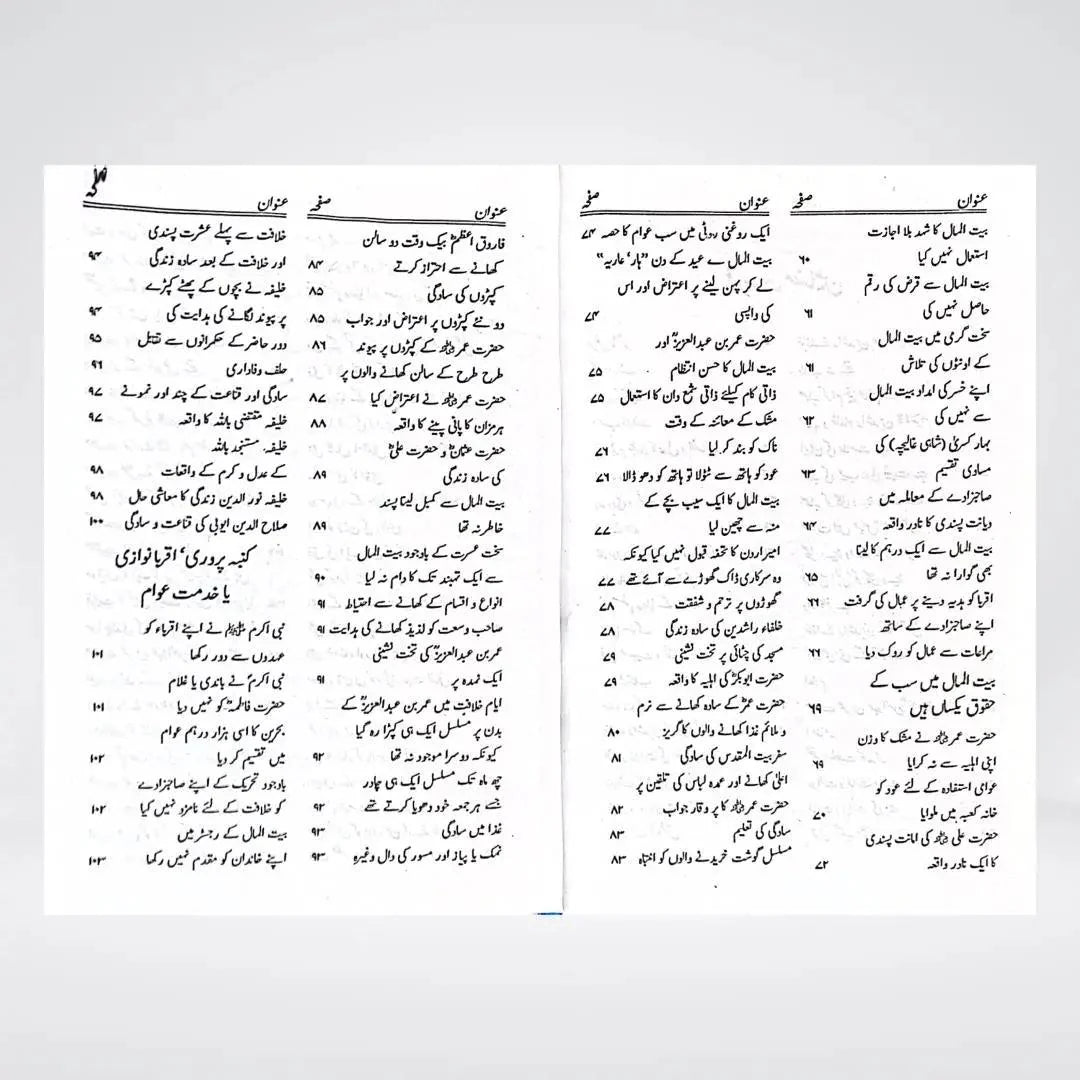 عنوان صفحہ
بیت المال کا شہد بلا اجازت
استعمال نہیں کیا ۶۰
بیت المال سے قرض کی رقم
حاصل نہیں کی ۶۱
سخت گرمی میں بیت المال
کے اونٹوں کی تلاش ۶۱
اپنے خسر کی امداد بیت المال
سے نہیں کی ۶۲
بہار کسریٰ (شاہی غالیچہ) کی
مساوی تقسیم ۶۳
صاجزادے کے معاملہ میں
دیانت پسندی کا نادر واقعہ ۶۳
بیت المال سے ایک درہم کا لینا
بھی گوارا نہ تھا ۶۵
اقربا کو ہدیہ دینے پر عمال کی گرفت ۶۶
اپنے صاجزادے کے ساتھ
مراعات سے عمال کو روک دیا ۶۶
بیت المال میں سب کے
حقوق یکساں ہیں ۶۹
حضرت عمرؓ نے مشک کا وزن
اپنی اہلیہ سے نہ کرایا ۶۹
عوامی استفادہ کے لئے عود کو
خانہ کعبہ میں ملوایا ۷۰
حضرت علیؓ کی امانت پسندی
کا ایک نادر واقعہ ۷۲
عنوان صفحہ
ایک روغنی روٹی میں سب عوام کا حصہ ۷۴
بیت المال سے عید کے دن ”ہار‘ عاریہ“
لے کر پہن لینے پر اعتراض اور اس
کی واپسی ۷۴
حضرت عمر بن عبدالعزیزؒ اور
بیت المال کا حسن انتظام ۷۵
ذاتی کام کیلئے ذاتی شمع دان کا استعمال ۷۵
مشک کے معائنہ کے وقت
ناک کو بند کر لیا ۷۶
عود کو ہاتھ سے ٹٹولا تو ہاتھ کو دھو ڈالا ۷۶
بیت المال کا ایک سیب بچے کے
منہ سے چھین لیا ۷۷
امیر اردن کا تحفہ قبول نہیں کیا کیونکہ
وہ سرکاری ڈاک گھوڑے سے آئے تھے ۷۷
گھوڑوں پر ترحم و شفقت ۷۸
خلفاء راشدین کی سادہ زندگی ۷۸
مسجد کی چٹائی پر تخت نشینی ۷۹
حضرت ابوبکرؓ کی اہلیہ کا واقعہ ۷۹
حضرت عمرؓ کے سادہ کھانے سے نرم
و ملائم غذا کھانے والوں کا گریز ۸۰
سفر بیت المقدس کی سادگی ۸۱
اعلیٰ کھانے اور عمدہ لباس کی تلقین پر
حضرت عمرؓ کا پر وقار جواب ۸۲
سادگی کی تعلیم ۸۳
مسلسل گوشت خریدنے والوں کو انتباہ ۸۳
عنوان صفحہ
فاروق اعظمؓ بیک وقت دو سالن
کھانے سے احتراز کرتے ۸۴
کپڑوں کی سادگی ۸۵
دو نئے کپڑوں پر اعتراض اور جواب ۸۵
حضرت عمرؓ کے کپڑوں پر پیوند ۸۶
طرح طرح کے سالن کھانے والوں پر
حضرت عمرؓ نے اعتراض کیا ۸۷
ہرمزان کا پانی پینے کا واقعہ ۸۸
حضرت عثمانؓ و حضرت علیؓ
کی سادہ زندگی ۸۹
بیت المال سے کمبل لینا پسند
خاطر نہ تھا ۸۹
سخت عسرت کے باوجود بیت المال
سے ایک تہبند تک کا دام نہ لیا ۹۰
انواع و اقسام کے کھانے سے احتیاط ۹۱
صاحب وسعت کو لذیذ کھانے کی ہدایت ۹۱
عمر بن عبدالعزیزؒ کی تخت نشینی
ایک نمدہ پر ۹۱
ایام خلافت میں عمر بن عبدالعزیزؒ کے
بدن پر مسلسل ایک ہی کپڑا رہ گیا
کیونکہ دوسرا موجود نہ تھا ۹۲
چھ ماہ تک مسلسل ایک ہی چادر
جسے ہر جمعہ خود دھویا کرتے تھے ۹۲
غذا میں سادگی ۹۳
نمک یا پیاز اور مسور کی دال وغیرہ ۹۳
عنوان صفحہ
خلافت سے پہلے عشرت پسندی
اور خلافت کے بعد سادہ زندگی ۹۴
خلیفہ نے بچوں کے پھٹے کپڑے
پر پیوند لگانے کی ہدایت کی ۹۴
دور حاضر کے حکمرانوں سے تقبل ۹۵
حلف وفاداری ۹۶
سادگی اور قناعت کے چند اور نمونے ۹۷
خلیفہ مقتضی باللہ کا واقعہ ۹۷
خلیفہ مستنجد باللہ
کے عدل و کرم کے واقعات ۹۸
خلیفہ نور الدین زندگی کا معاشی حال ۹۸
صلاح الدین ایوبی کی قناعت و سادگی ۱۰۰
کنبہ پروری‘ اقربا نوازی
یا خدمت عوام
نبی اکرم ﷺ نے اپنے اقرباء کو
عہدوں سے دور رکھا ۱۰۱
نبی اکرمؐ نے باندی یا غلام
حضرت فاطمہؓ کو نہیں دیا ۱۰۱
بحرین کا اسی ہزار درہم عوام
میں تقسیم کر دیا ۱۰۲
باوجود تحریک کے اپنے صاجزادے
کو خلافت کے لئے نامزد نہیں کیا ۱۰۲
بیت المال کے رجسٹر میں
اپنے خاندان کو مقدم نہیں رکھا ۱۰۳